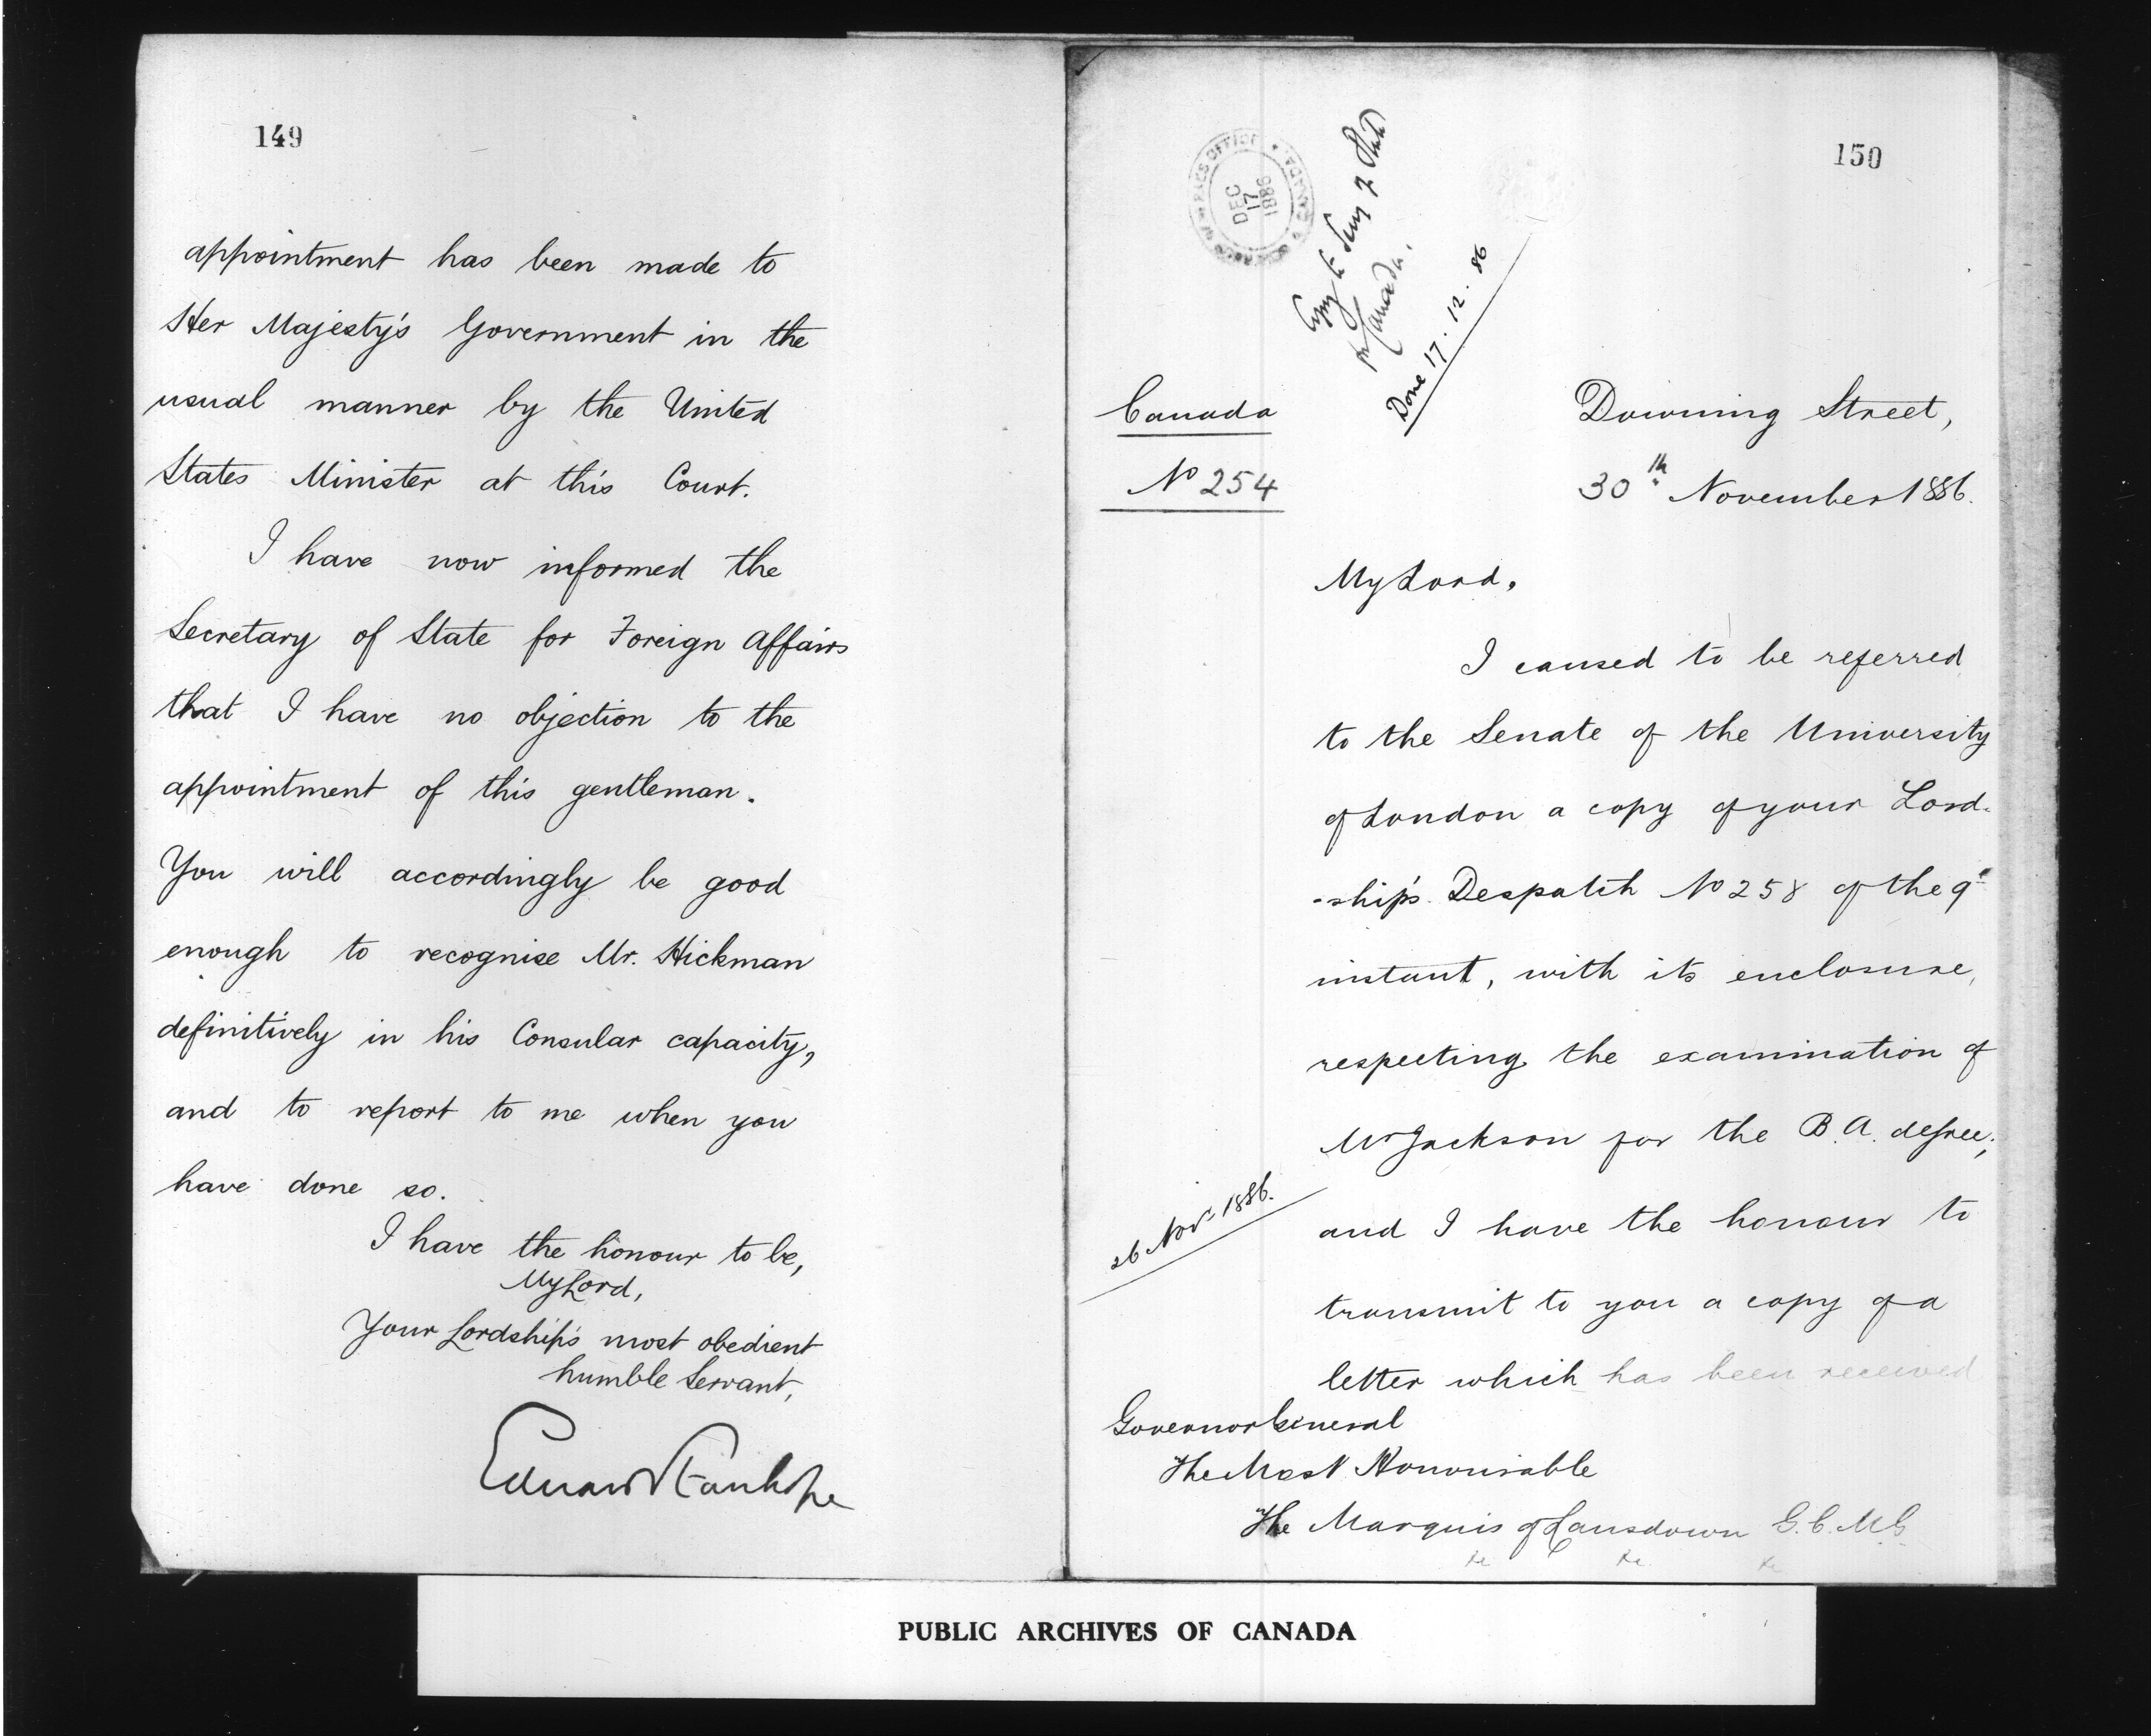 149
appointment has been made to
Her Majesty's Government in the
usual manner by the United
States Minister at this Court.
I have now informed the
Secretary of State for Foreign Affairs
that I have no objection to the
appointment of this gentleman.
You will accordingly be good
enough to recognise Mr. Hickman
definitively in his Consular capacity,
and to report to me when you
have done so.
I have the honour to be,
My Lord,
Your Lordship's most obedient
humble Servant,
Edward Stanhope
150
DEC
17
1886
CANADA
Copy to Secy of State
Canada.
Done 17.12.86
Canada
No 254
Downing Street,
30th November 1886.
My Lord,
I caused to be referred
to the Senate of the University
of London a copy of your Lord-
-ship's Despatch No 258 of the 9th
instant, with its enclosure,
respecting the examination of
Mr Jackson for the B.A. degree;
26 Novr 1886.
and I have the honour to
transmit to you a copy of a
letter which has been received
Governor General
The Most Honourable
The Marquis of Lansdown G.C.M.G
&c &c &c
PUBLIC ARCHIVES OF CANADA